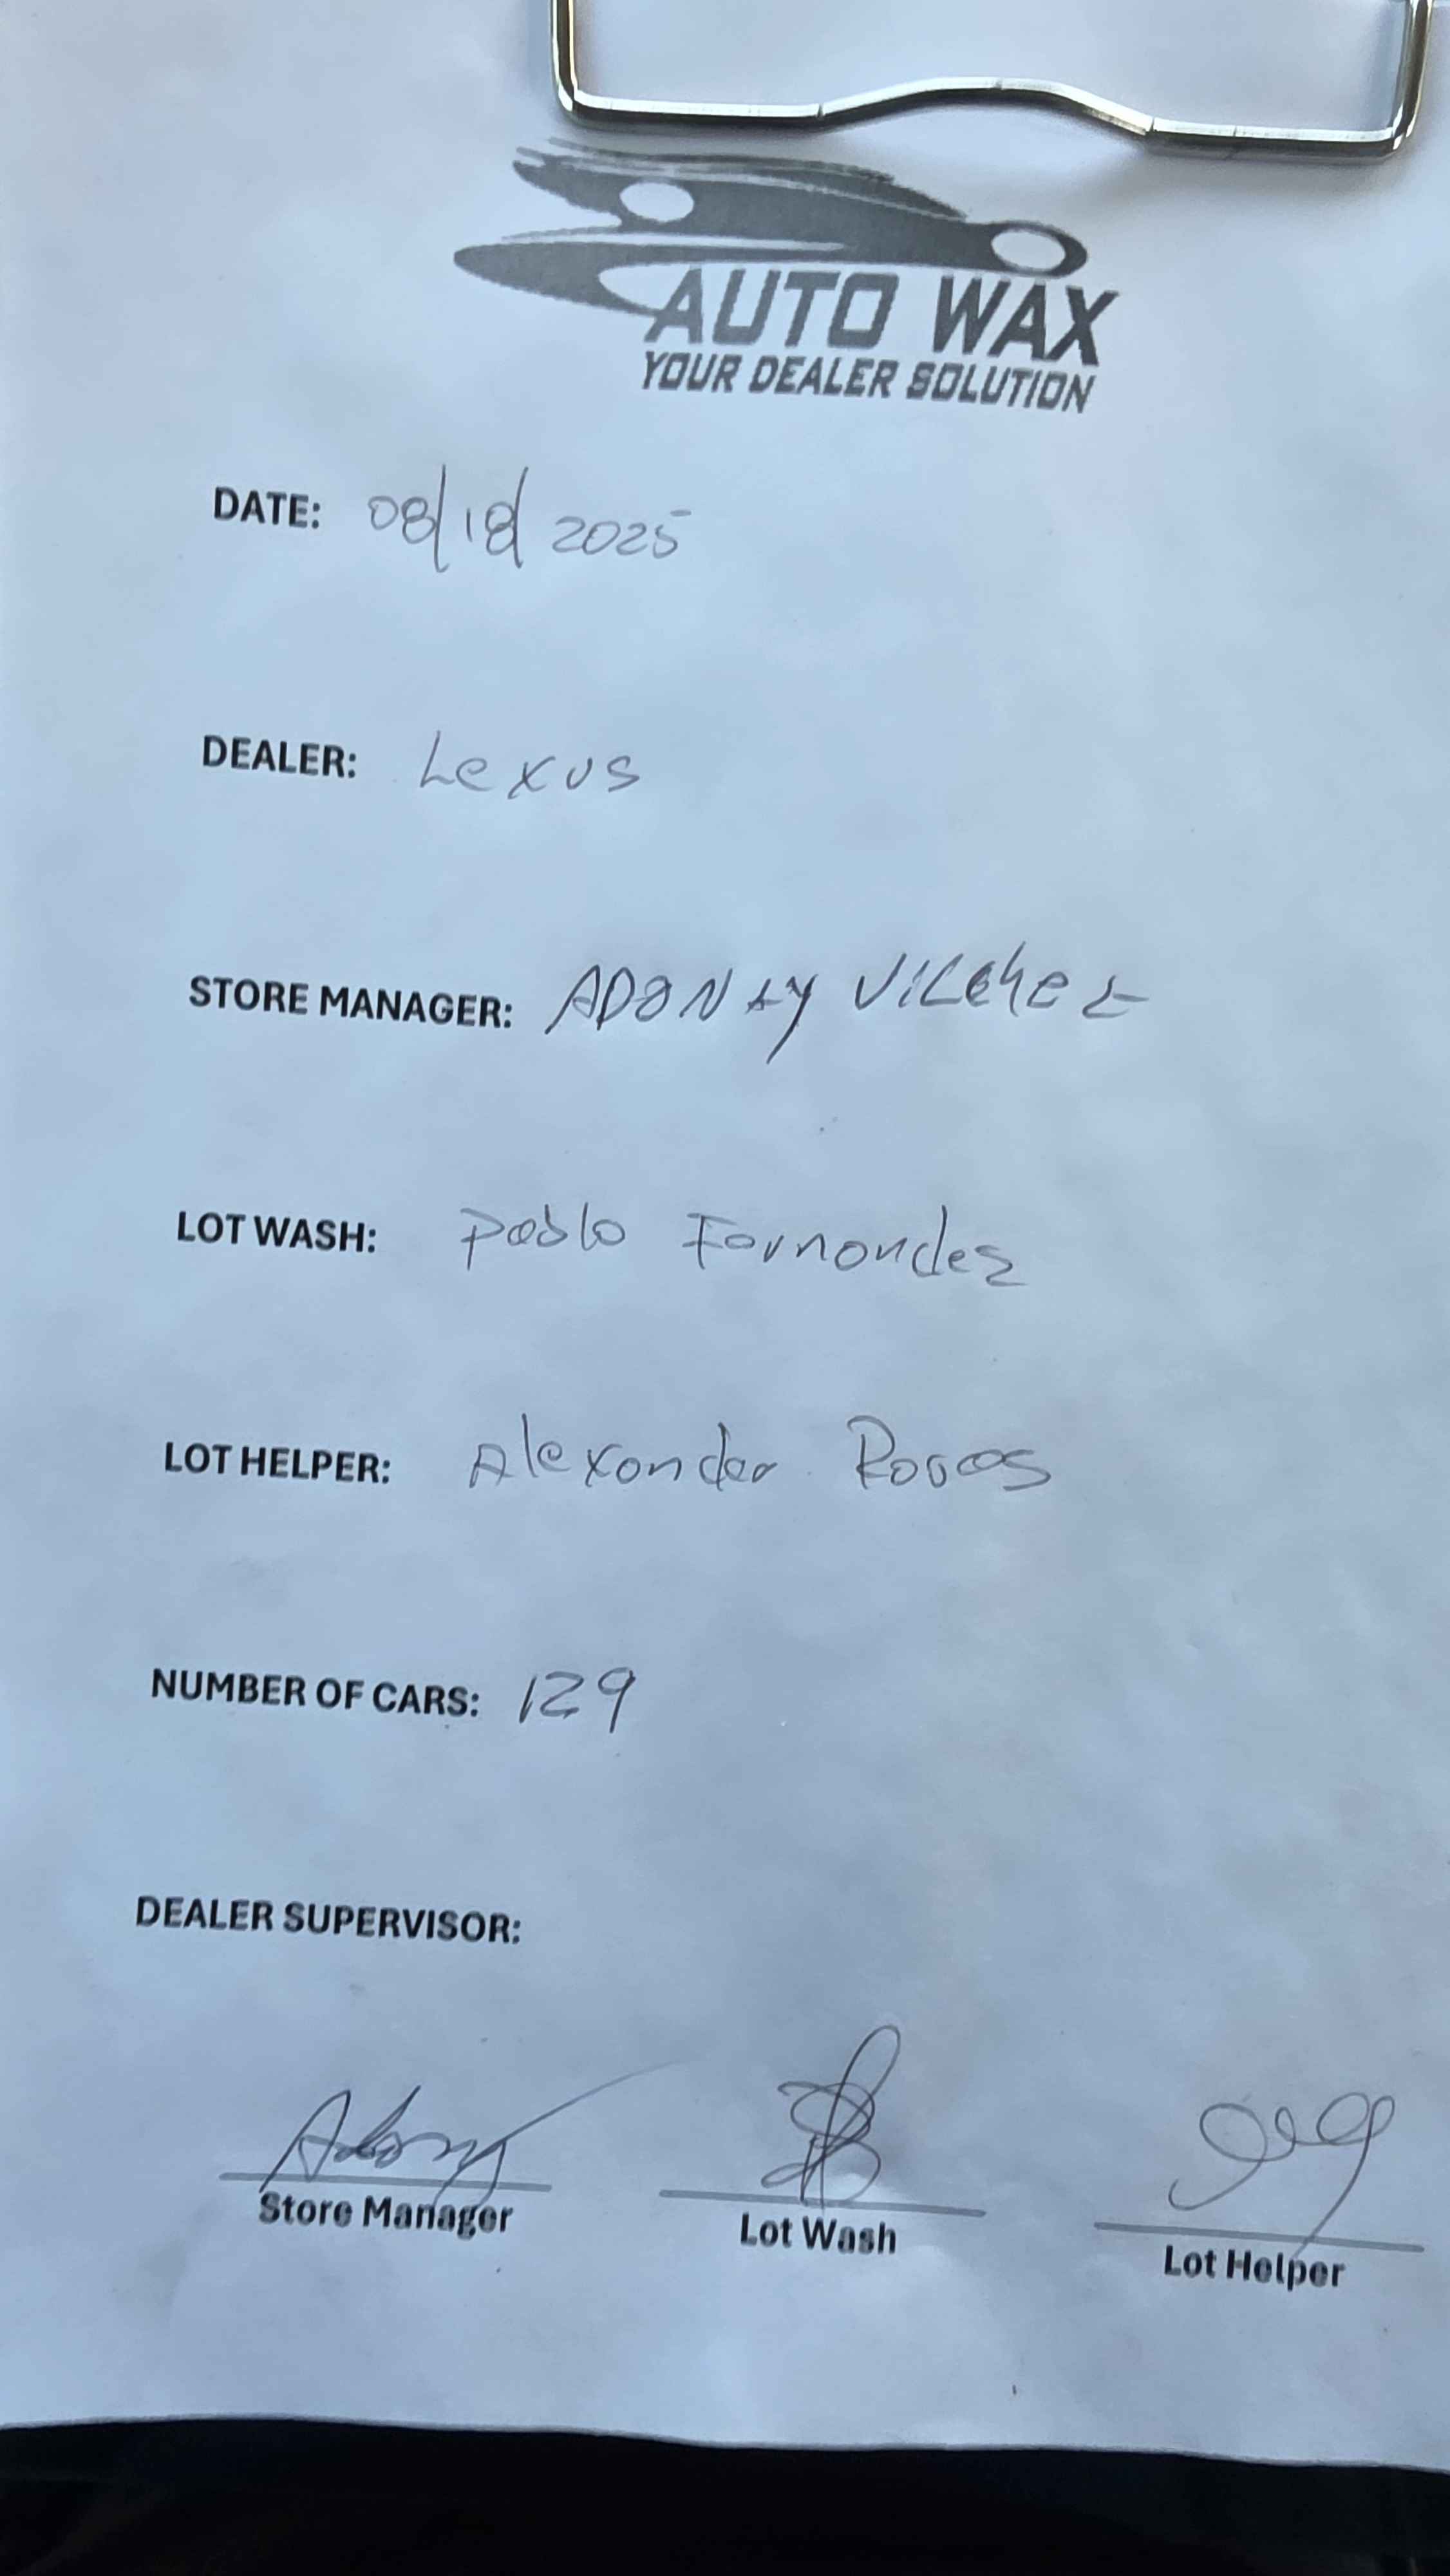 AUTO WAX
YOUR DEALER SOLUTION
DATE: 08/18/2025
DEALER: Lexus
STORE MANAGER: ADONAY VILCHEZ
LOT WASH: Pablo Fernandez
LOT HELPER: Alexander Rosas
NUMBER OF CARS: 129
DEALER SUPERVISOR:
Adonay
Store Manager
Lot Wash
Lot Helper